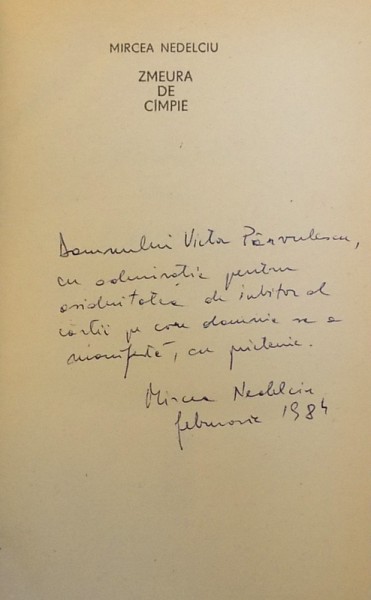 MIRCEA NEDELCIU
ZMEURA
DE
CÎMPIE
Domnului Victor Pârvulescu,
cu admirație pentru
asiduitatea de iubitor al
cărții pe care domnia sa o
manifestă, cu prietenie.
Mircea Nedelciu
februarie 1984